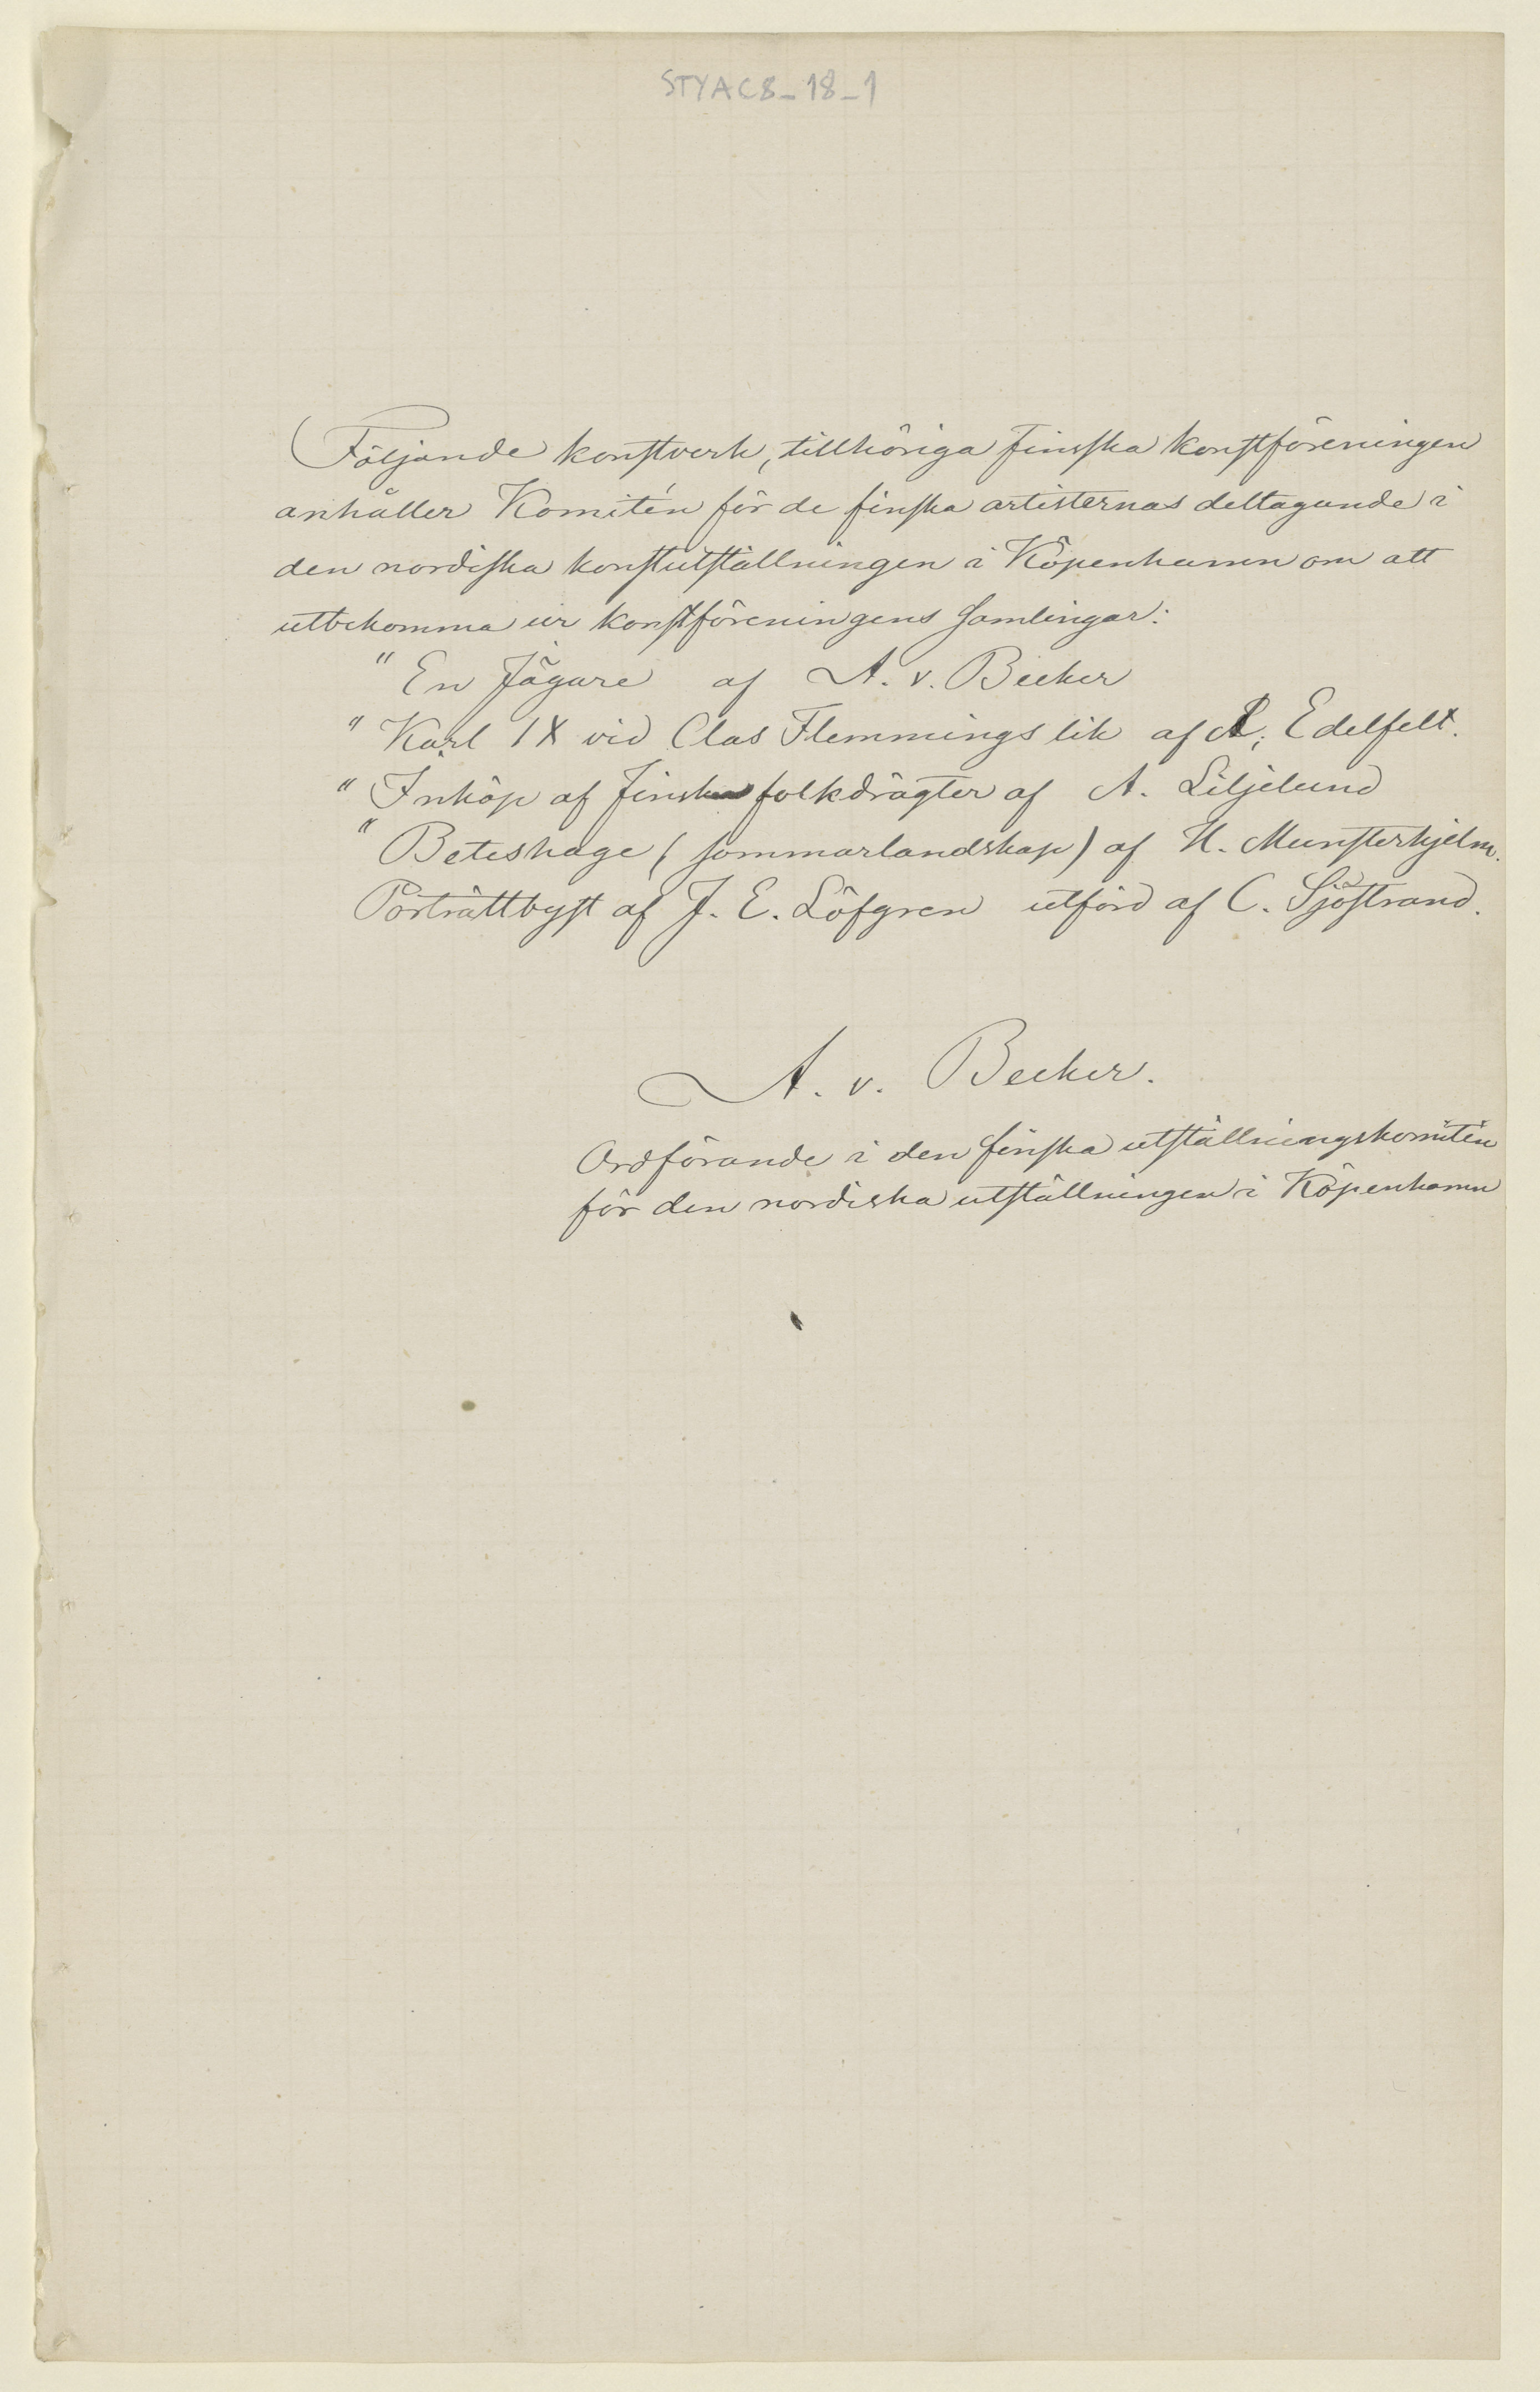 STYAC8_18_1
Följande konstverk, tillhöriga Finska konstföreningen
anhåller Komitén för de finska artisternas deltagande i
den nordiska konstutställningen i Köpenhamn om att
utbekomma ur konstföreningens samlingar:
" En Jägare af A. v. Becker
" Karl IX vid Clas Flemmings lik af A. Edelfelt.
" Inköp af finska folkdrägter af A. Liljelund
" Beteshage (sommarlandskap) af H. Munsterhjelm.
Porträttbyst af J. E. Löfgren utförd af C. Sjöstrand.
A. v. Becker.
Ordförande i den finska utställningskomitén
för den nordiska utställningen i Köpenhamn